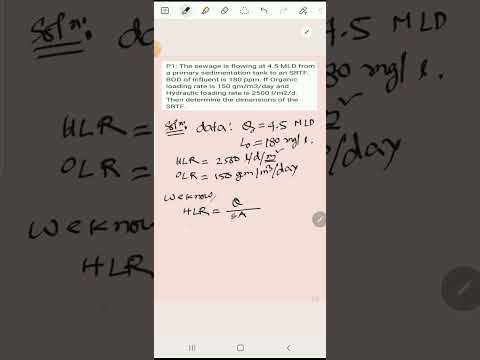 P1: The sewage is flowing at 4.5 MLD from
a primary sedimentation tank to an SRTF.
BOD of influent is 180 ppm. If Organic
loading rate is 150 gm/m3/day and
Hydraulic loading rate is 2500 l/m2/d.
Then determine the dimensions of the
SRTF.
Soln: data: Q = 4.5 MLD
Lo = 180 mg/l.
HLR = 2500 l/d/m²
OLR = 150 gm/m³/day
We know,
HLR = Q/SA